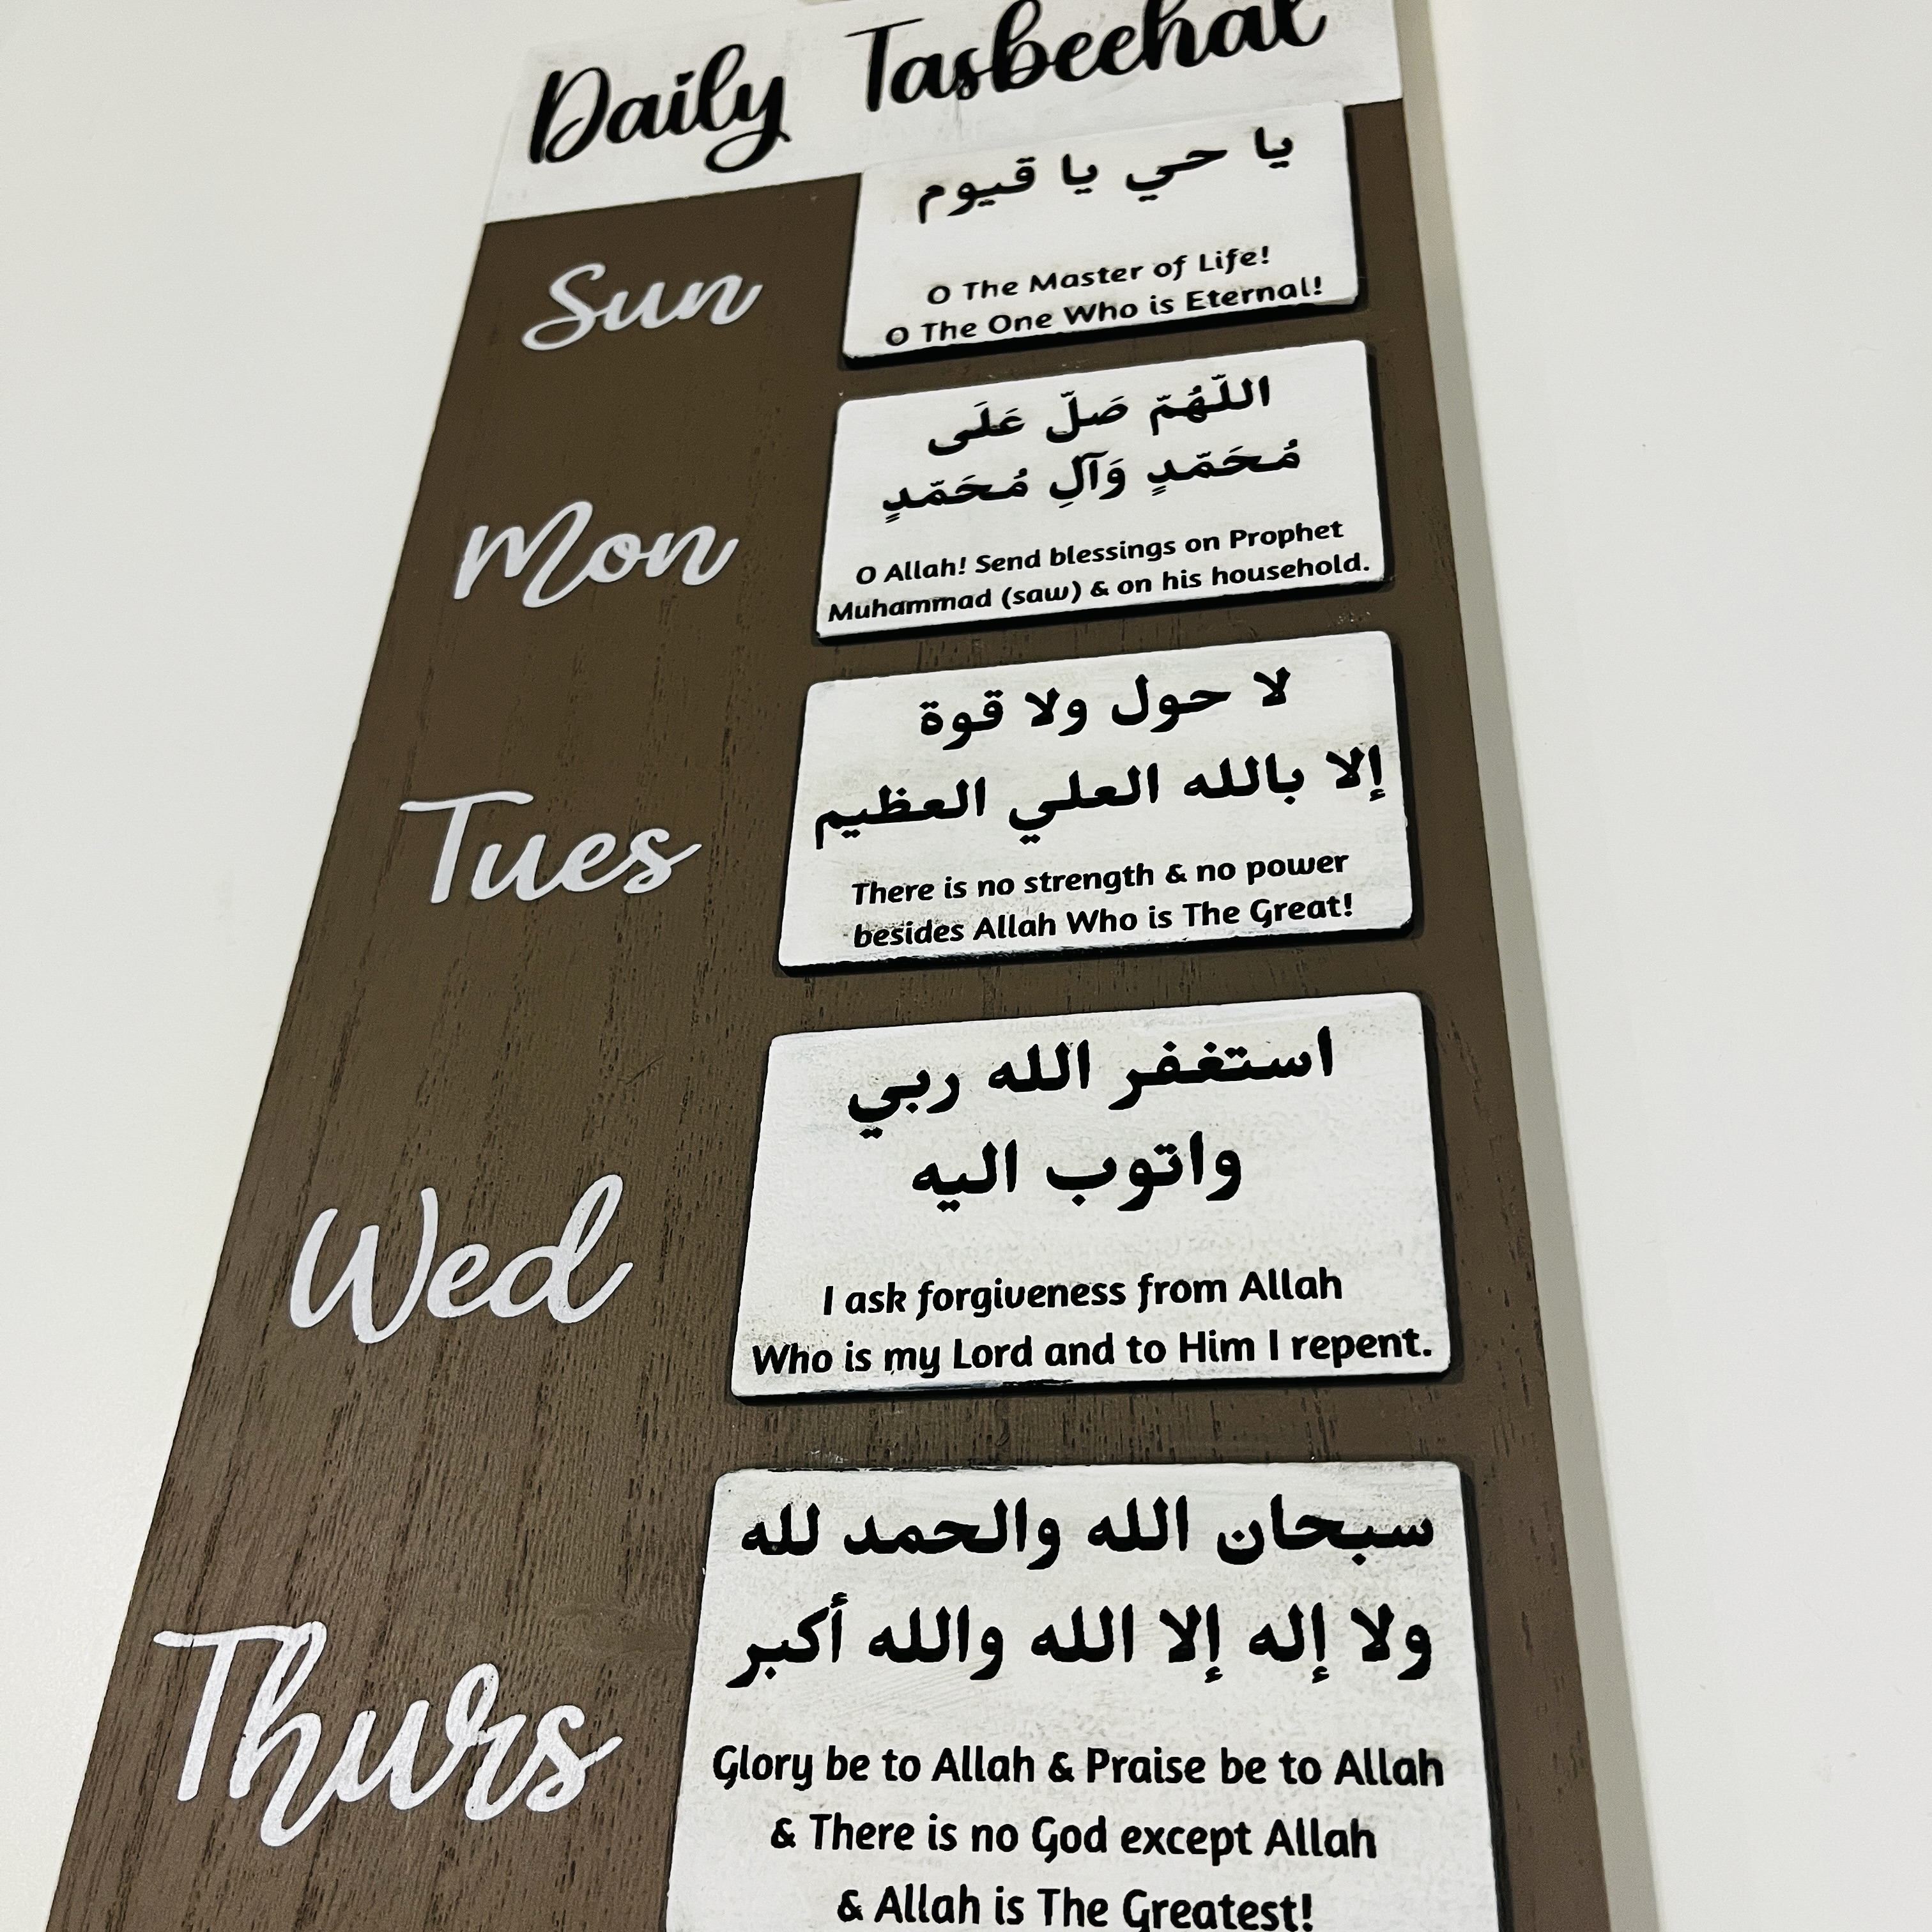 Daily Tasbeehat
Sun
يا حي يا قيوم
O The Master of Life!
O The One Who is Eternal!
Mon
اللّهُمّ صَلّ عَلَى
مُحَمّدٍ وَآلِ مُحَمّدٍ
O Allah! Send blessings on Prophet
Muhammad (saw) & on his household.
Tues
لا حول ولا قوة
إلا بالله العلي العظيم
There is no strength & no power
besides Allah Who is The Great!
Wed
استغفر الله ربي
واتوب اليه
I ask forgiveness from Allah
Who is my Lord and to Him I repent.
Thurs
سبحان الله والحمد لله
ولا إله إلا الله والله أكبر
Glory be to Allah & Praise be to Allah
& There is no God except Allah
& Allah is The Greatest!